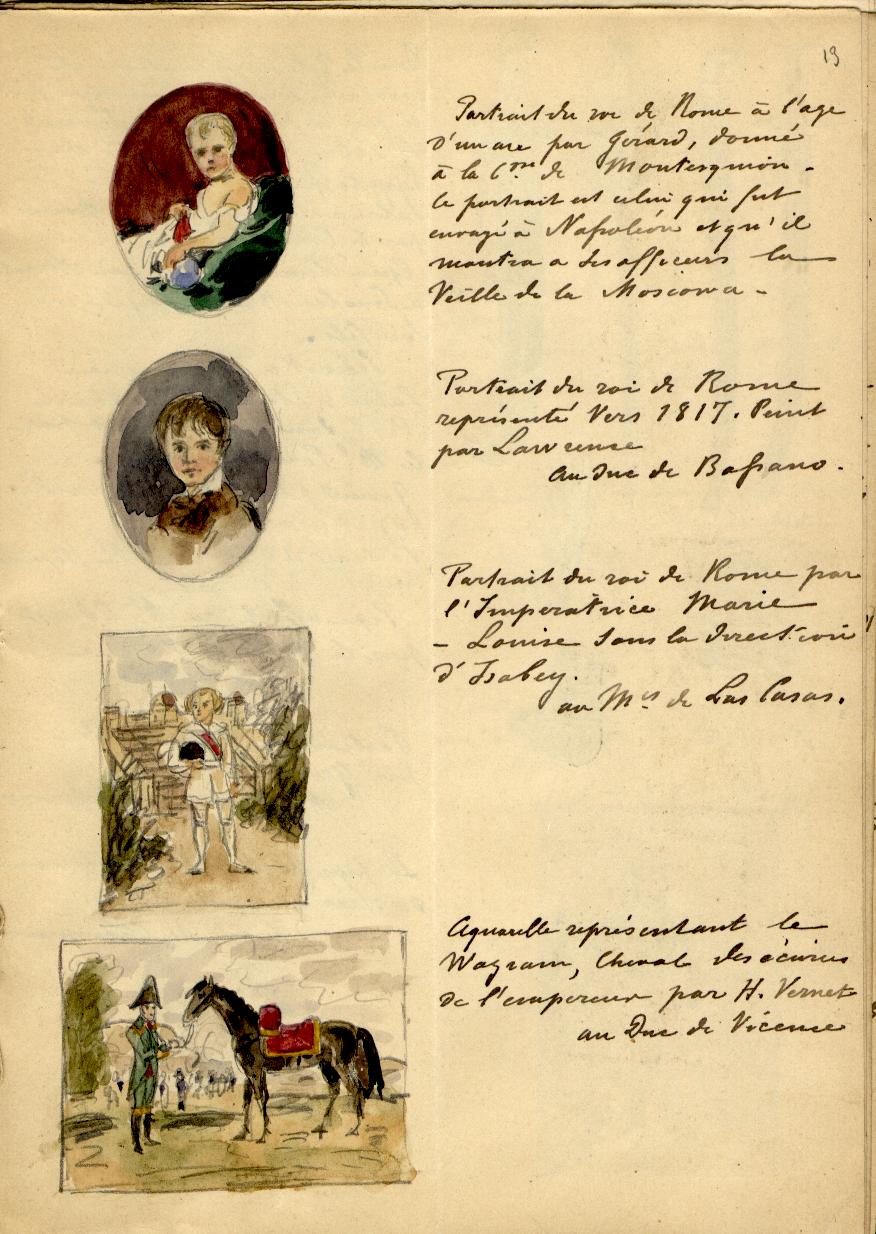 13
Portrait du roi de Rome à l'age
d'un an par Gérard, donné
à la Ctesse de Montesquiou -
le portrait est celui qui fut
envoyé à Napoléon et qu'il
montra a ses officiers la
Veille de la Moscowa -
Portrait du roi de Rome
représenté Vers 1817. Peint
par Lawrence
au Duc de Bassano.
Portrait du roi de Rome par
l'Imperatrice Marie
- Louise sous la direction
d'Isabey.
au Mis de Las Casas.
Aquarelle représentant le
Wagram, Cheval des écuries
de l'empereur par H. Vernet
au Duc de Vicence